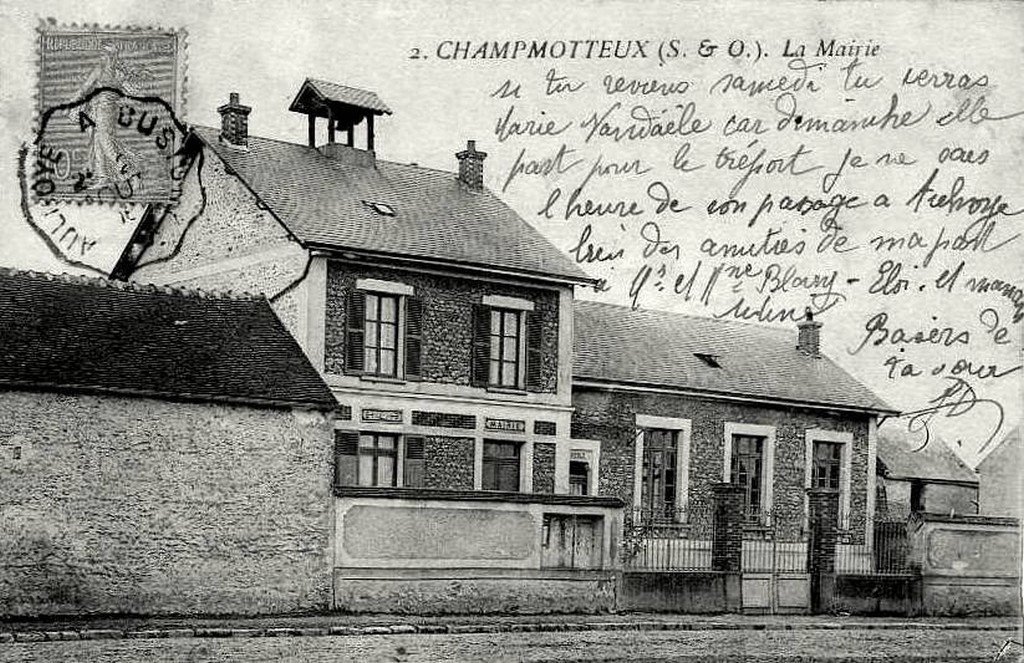 2. CHAMPMOTTEUX (S. & O.). La Mairie
si tu reviens samedi tu verras
Marie Vandaële car dimanche elle
part pour le tréport je ne sais
l heure de son passage a
des amitiés de ma part
a Mr et Mme Blavy - Eloi. et maman
Basers de
ta sœur
REPUBLIQUE FRANÇAISE
MAIRIE